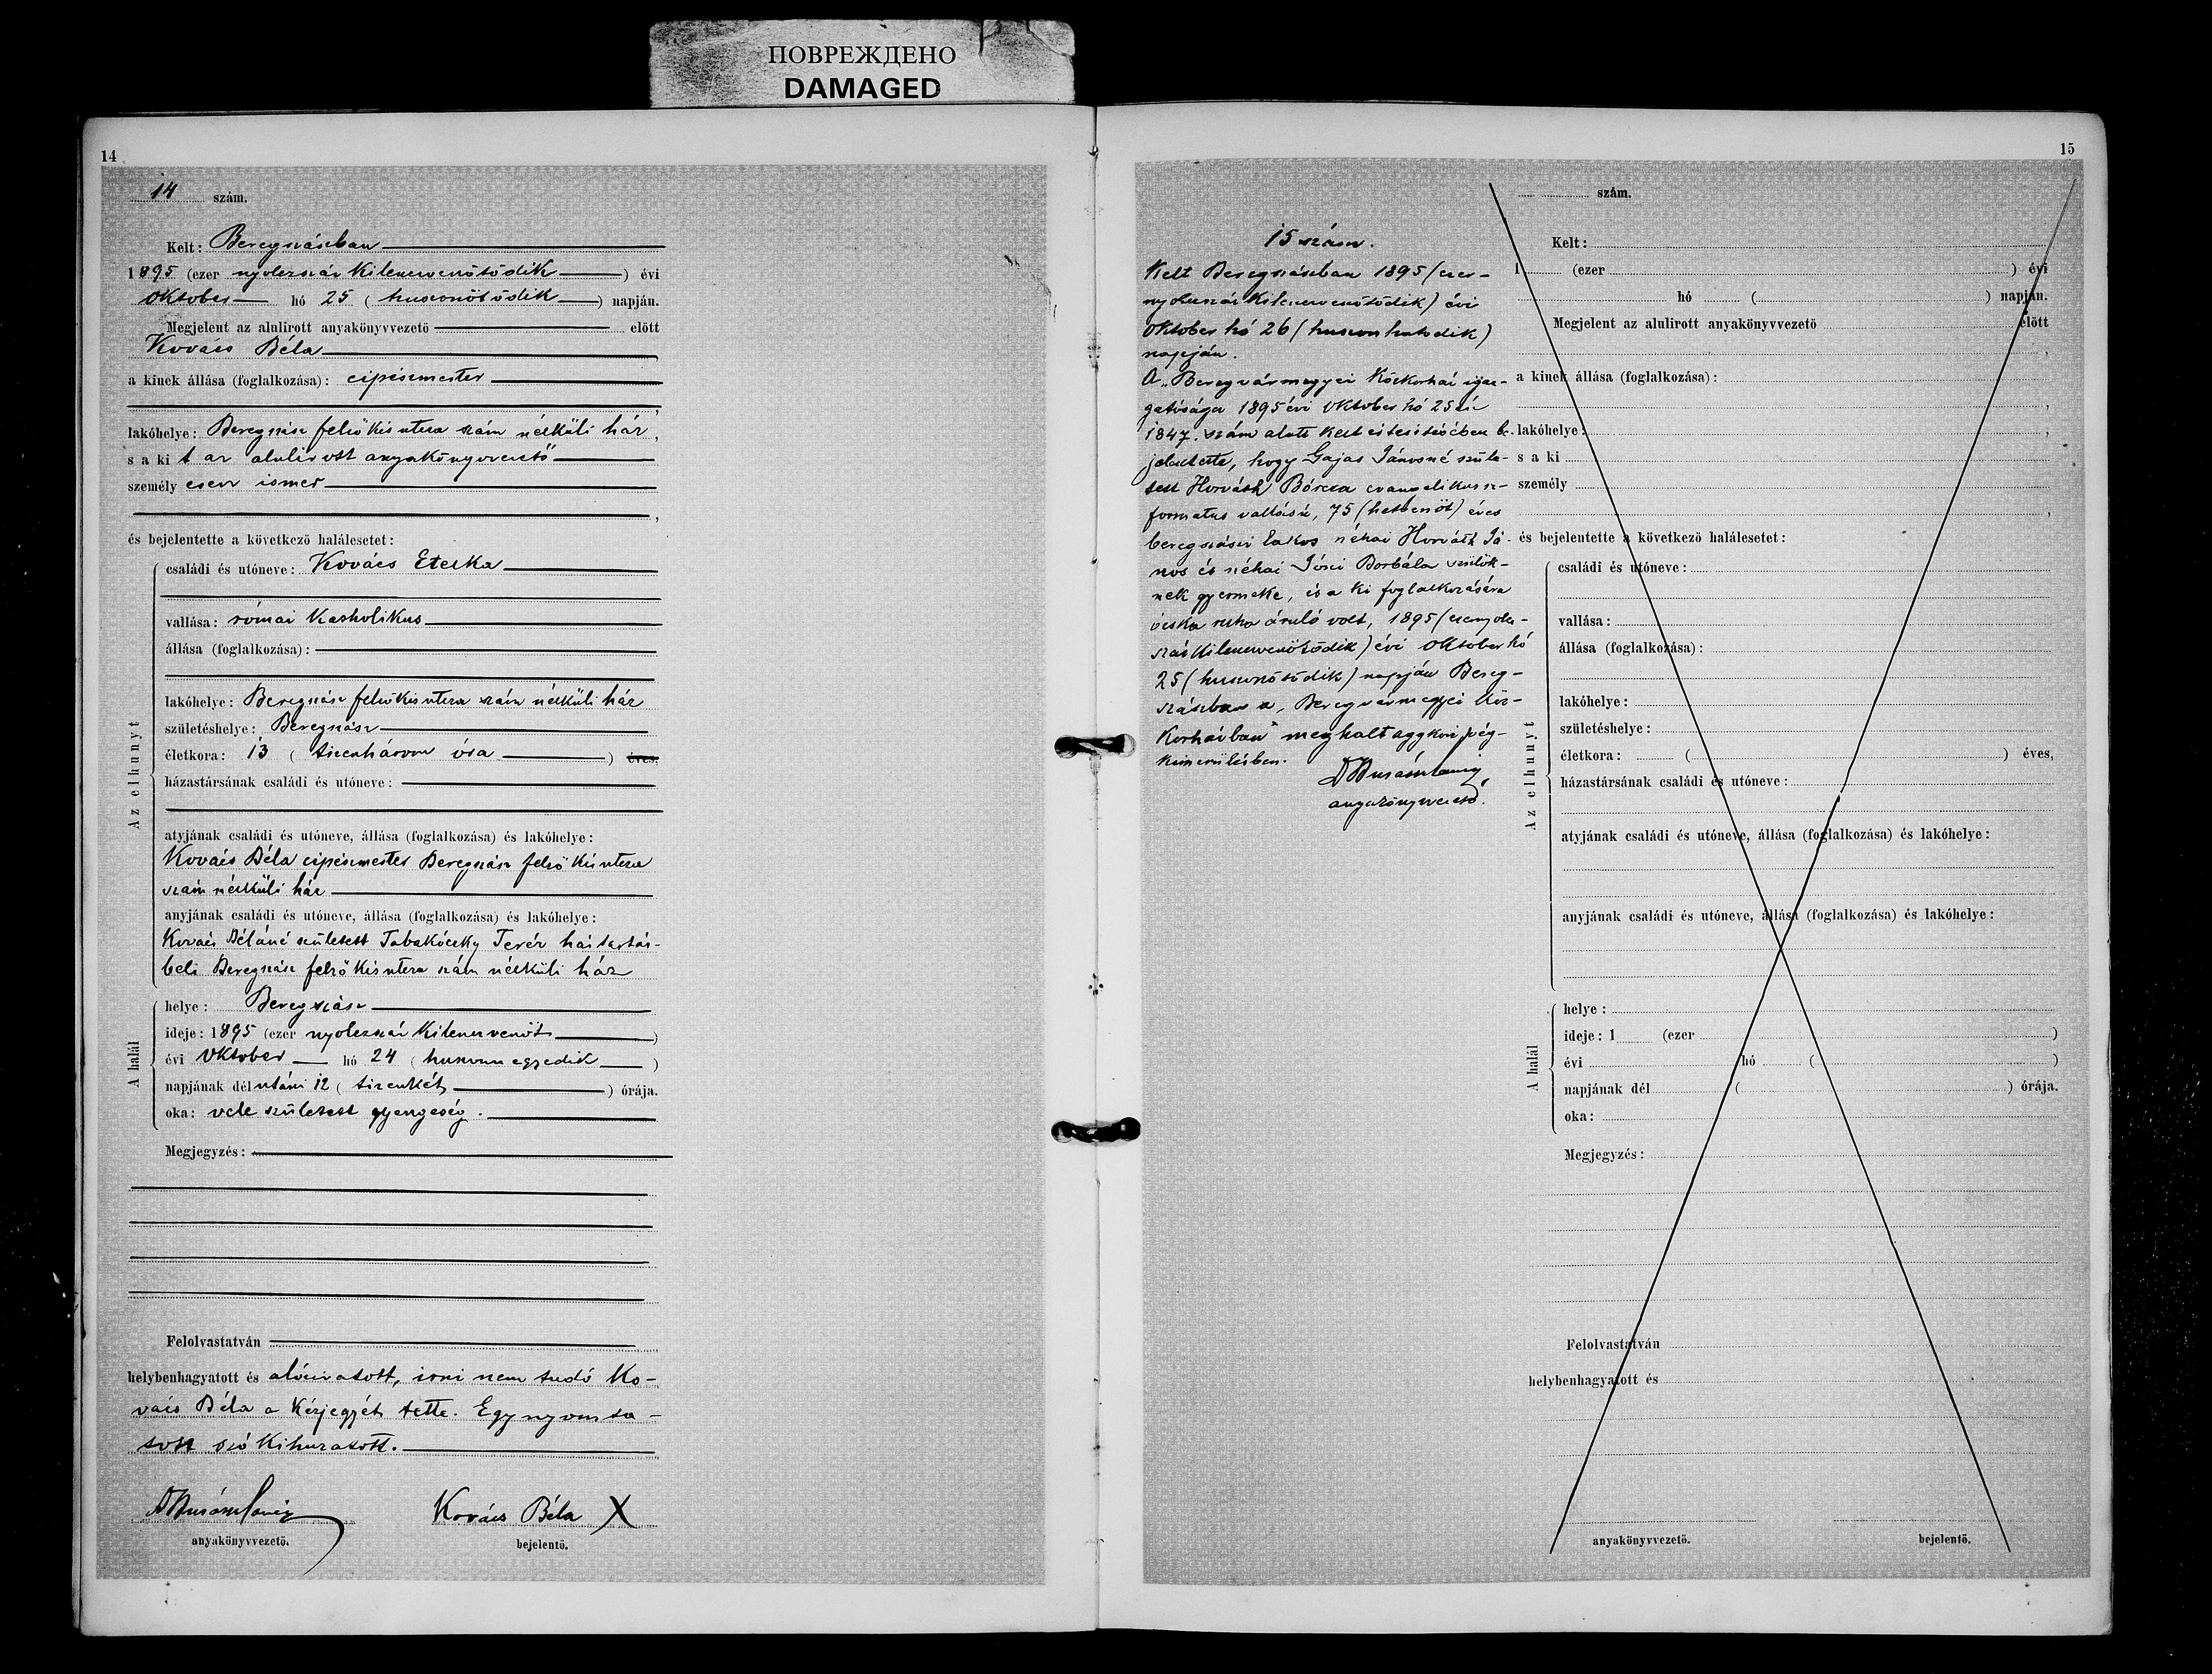 ПОВРЕЖДЕНО
DAMAGED
14
14 szám.
Kelt: Beregszászban
1895 (ezer nyolczszáz kilenczvenötödik) évi
Oktober hó 25 (huszonötödik) napján.
Megjelent az alulirott anyakönyvvezető előtt
Kovács Béla,
a kinek állása (foglalkozása): cipészmester
,
lakóhelye: Beregszász felső kis utcza szám nélküli ház,
s a kit az alulirott anyakönyvvezető
személyesen ismer
,
és bejelentette a következő halálesetet:
Az elhunyt
családi és utóneve: Kovács Etelka
vallása: római katholikus
állása (foglalkozása):
lakóhelye: Beregszász felső kis utcza szám nélküli ház
születéshelye: Beregszász
életkora: 13 (tizenhárom óra) éves,
házastársának családi és utóneve:
atyjának családi és utóneve, állása (foglalkozása) és lakóhelye:
Kovács Béla cipészmester Beregszász felső kis utcza
szám nélküli ház
anyjának családi és utóneve, állása (foglalkozása) és lakóhelye:
Kovács Béláné született Teréz háztartás-
beli Beregszász felső kis utcza szám nélküli ház
A halál
helye: Beregszász
ideje: 1895 (ezer nyolczszáz kilenczvenöt)
évi Oktober hó 24 (huszonnegyedik)
napjának délutáni 12 (tizenkét) órája.
oka: vele született gyengeség.
Megjegyzés:
Felolvastatván
helybenhagyatott és aláiratott, irni nem tudó Ko-
vács Béla a kézjegyét tette. Egy nyomta-
tott szó kihuzatott.
anyakönyvvezető.
Kovács Béla X
bejelentő.
15
15 szám.
Kelt Beregszászban 1895 (ezer-
nyolczszáz kilenczvenötödik) évi
Oktober hó 26 (huszonhatodik)
napján.
A „Beregvármegyei Közkorház igaz-
gatósága 1895 évi Oktober hó 25én
1847. szám alatt kelt értesitésében be-
jelentette, hogy Gajas Jánosné szüle-
tett Horváth Bórcza evangelikus re-
formatus vallású, 75 (hetvenöt) éves
beregszászi lakos néhai Horváth Já-
nos és néhai Borbála szülők-
nek gyermeke, és a ki foglalkozására
ócska ruha áruló volt, 1895 (ezernyolcz-
száz kilenczvenötödik) évi Oktober hó
25 (huszonötödik) napján Bereg-
szászban a „Beregvármegyei köz-
korházban" meghalt aggkori vég-
kimerülésben.
anyakönyvvezető.
szám.
Kelt:
1 (ezer ) évi
hó ( ) napján.
Megjelent az alulirott anyakönyvvezető előtt
,
a kinek állása (foglalkozása):
,
lakóhelye: ,
s a ki
személy
,
és bejelentette a következő halálesetet:
Az elhunyt
családi és utóneve:
vallása:
állása (foglalkozása):
lakóhelye:
születéshelye:
életkora: ( ) éves,
házastársának családi és utóneve:
atyjának családi és utóneve, állása (foglalkozása) és lakóhelye:
anyjának családi és utóneve, állása (foglalkozása) és lakóhelye:
A halál
helye:
ideje: 1 (ezer )
évi hó ( )
napjának dél ( ) órája.
oka:
Megjegyzés:
Felolvastatván
helybenhagyatott és
anyakönyvvezető.
bejelentő.